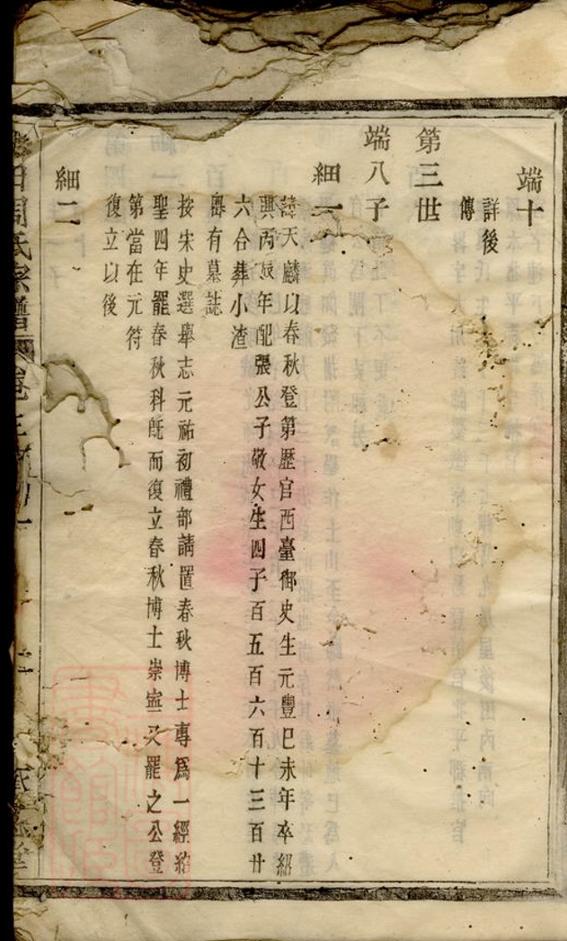 端十
詳後
傳
第三世
端八子
細一
諱天麟以春秋登第歷官西臺御史生元豐巳未年卒紹
興丙辰年配張公子敬女生四子百五百六百十三百廿
六合葬小渣
塢有墓誌
按宋史選舉志元祐初禮部請置春秋博士專爲一經紹
聖四年罷春秋科旣而復立春秋博士崇寧又罷之公登
第當在元符
復立以後
細二
周氏宗譜